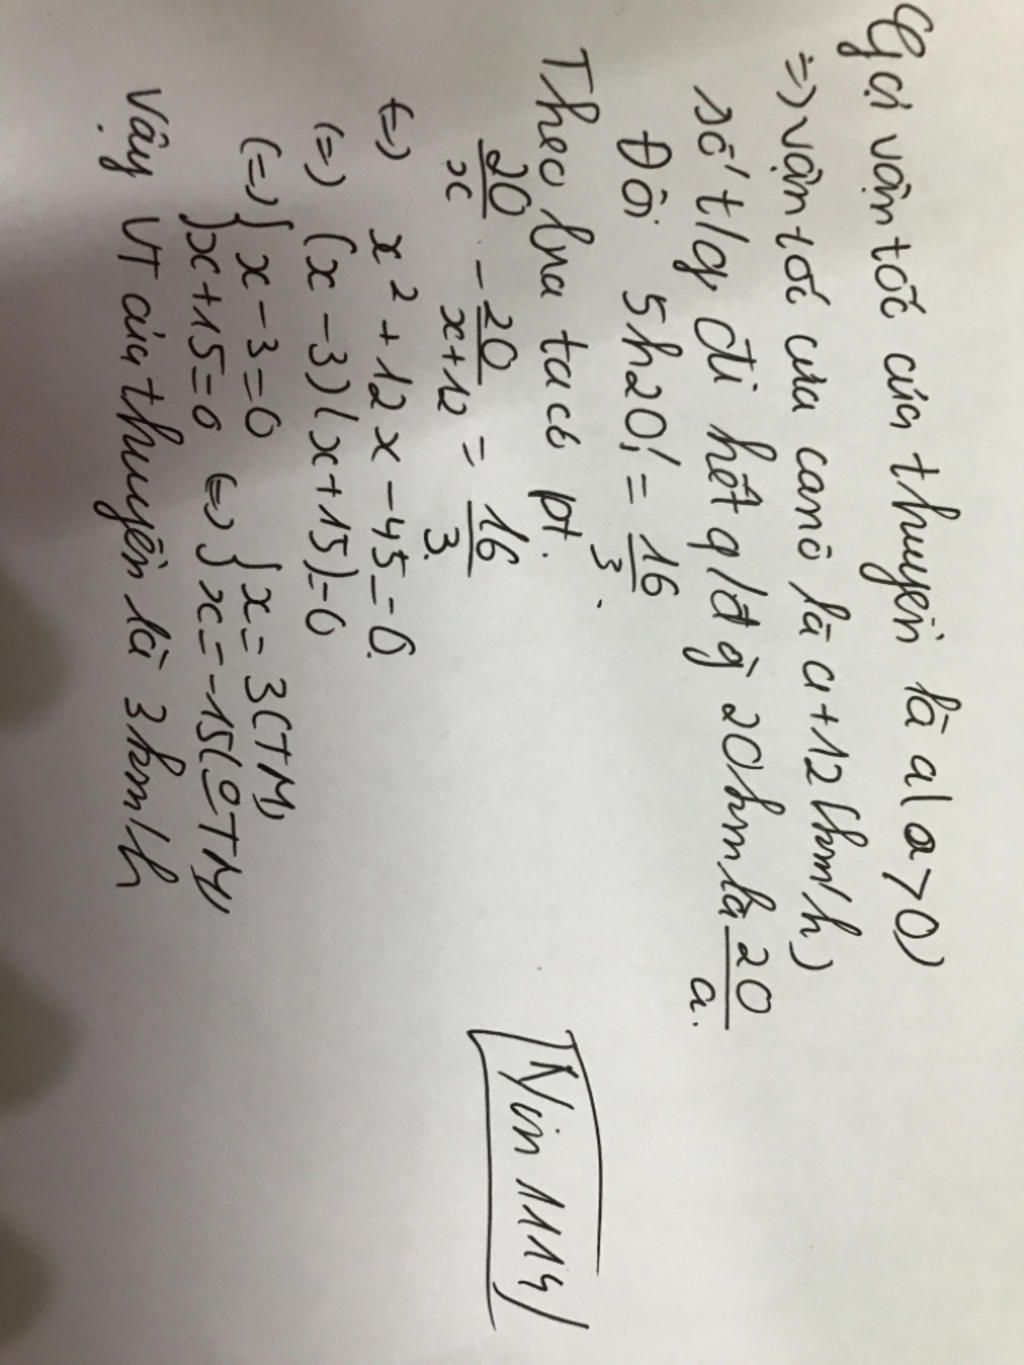 Gọi vận tốc của thuyền là a(a>0)
=> vận tốc của canô là a+12(km/h)
số t/g đi hết q/đg 20km là 20/a.
Đổi 5h20' = 16/3.
Theo bra ta có pt.
20/x - 20/x+12 = 16/3.
<=> x²+12x-45=0.
<=> (x-3)(x+15)=0
<=> { x-3=0 x+15=0 <=> { x=3(TM) x=-15(0TM)
Vậy VT của thuyền là 3km/h
Nin1114